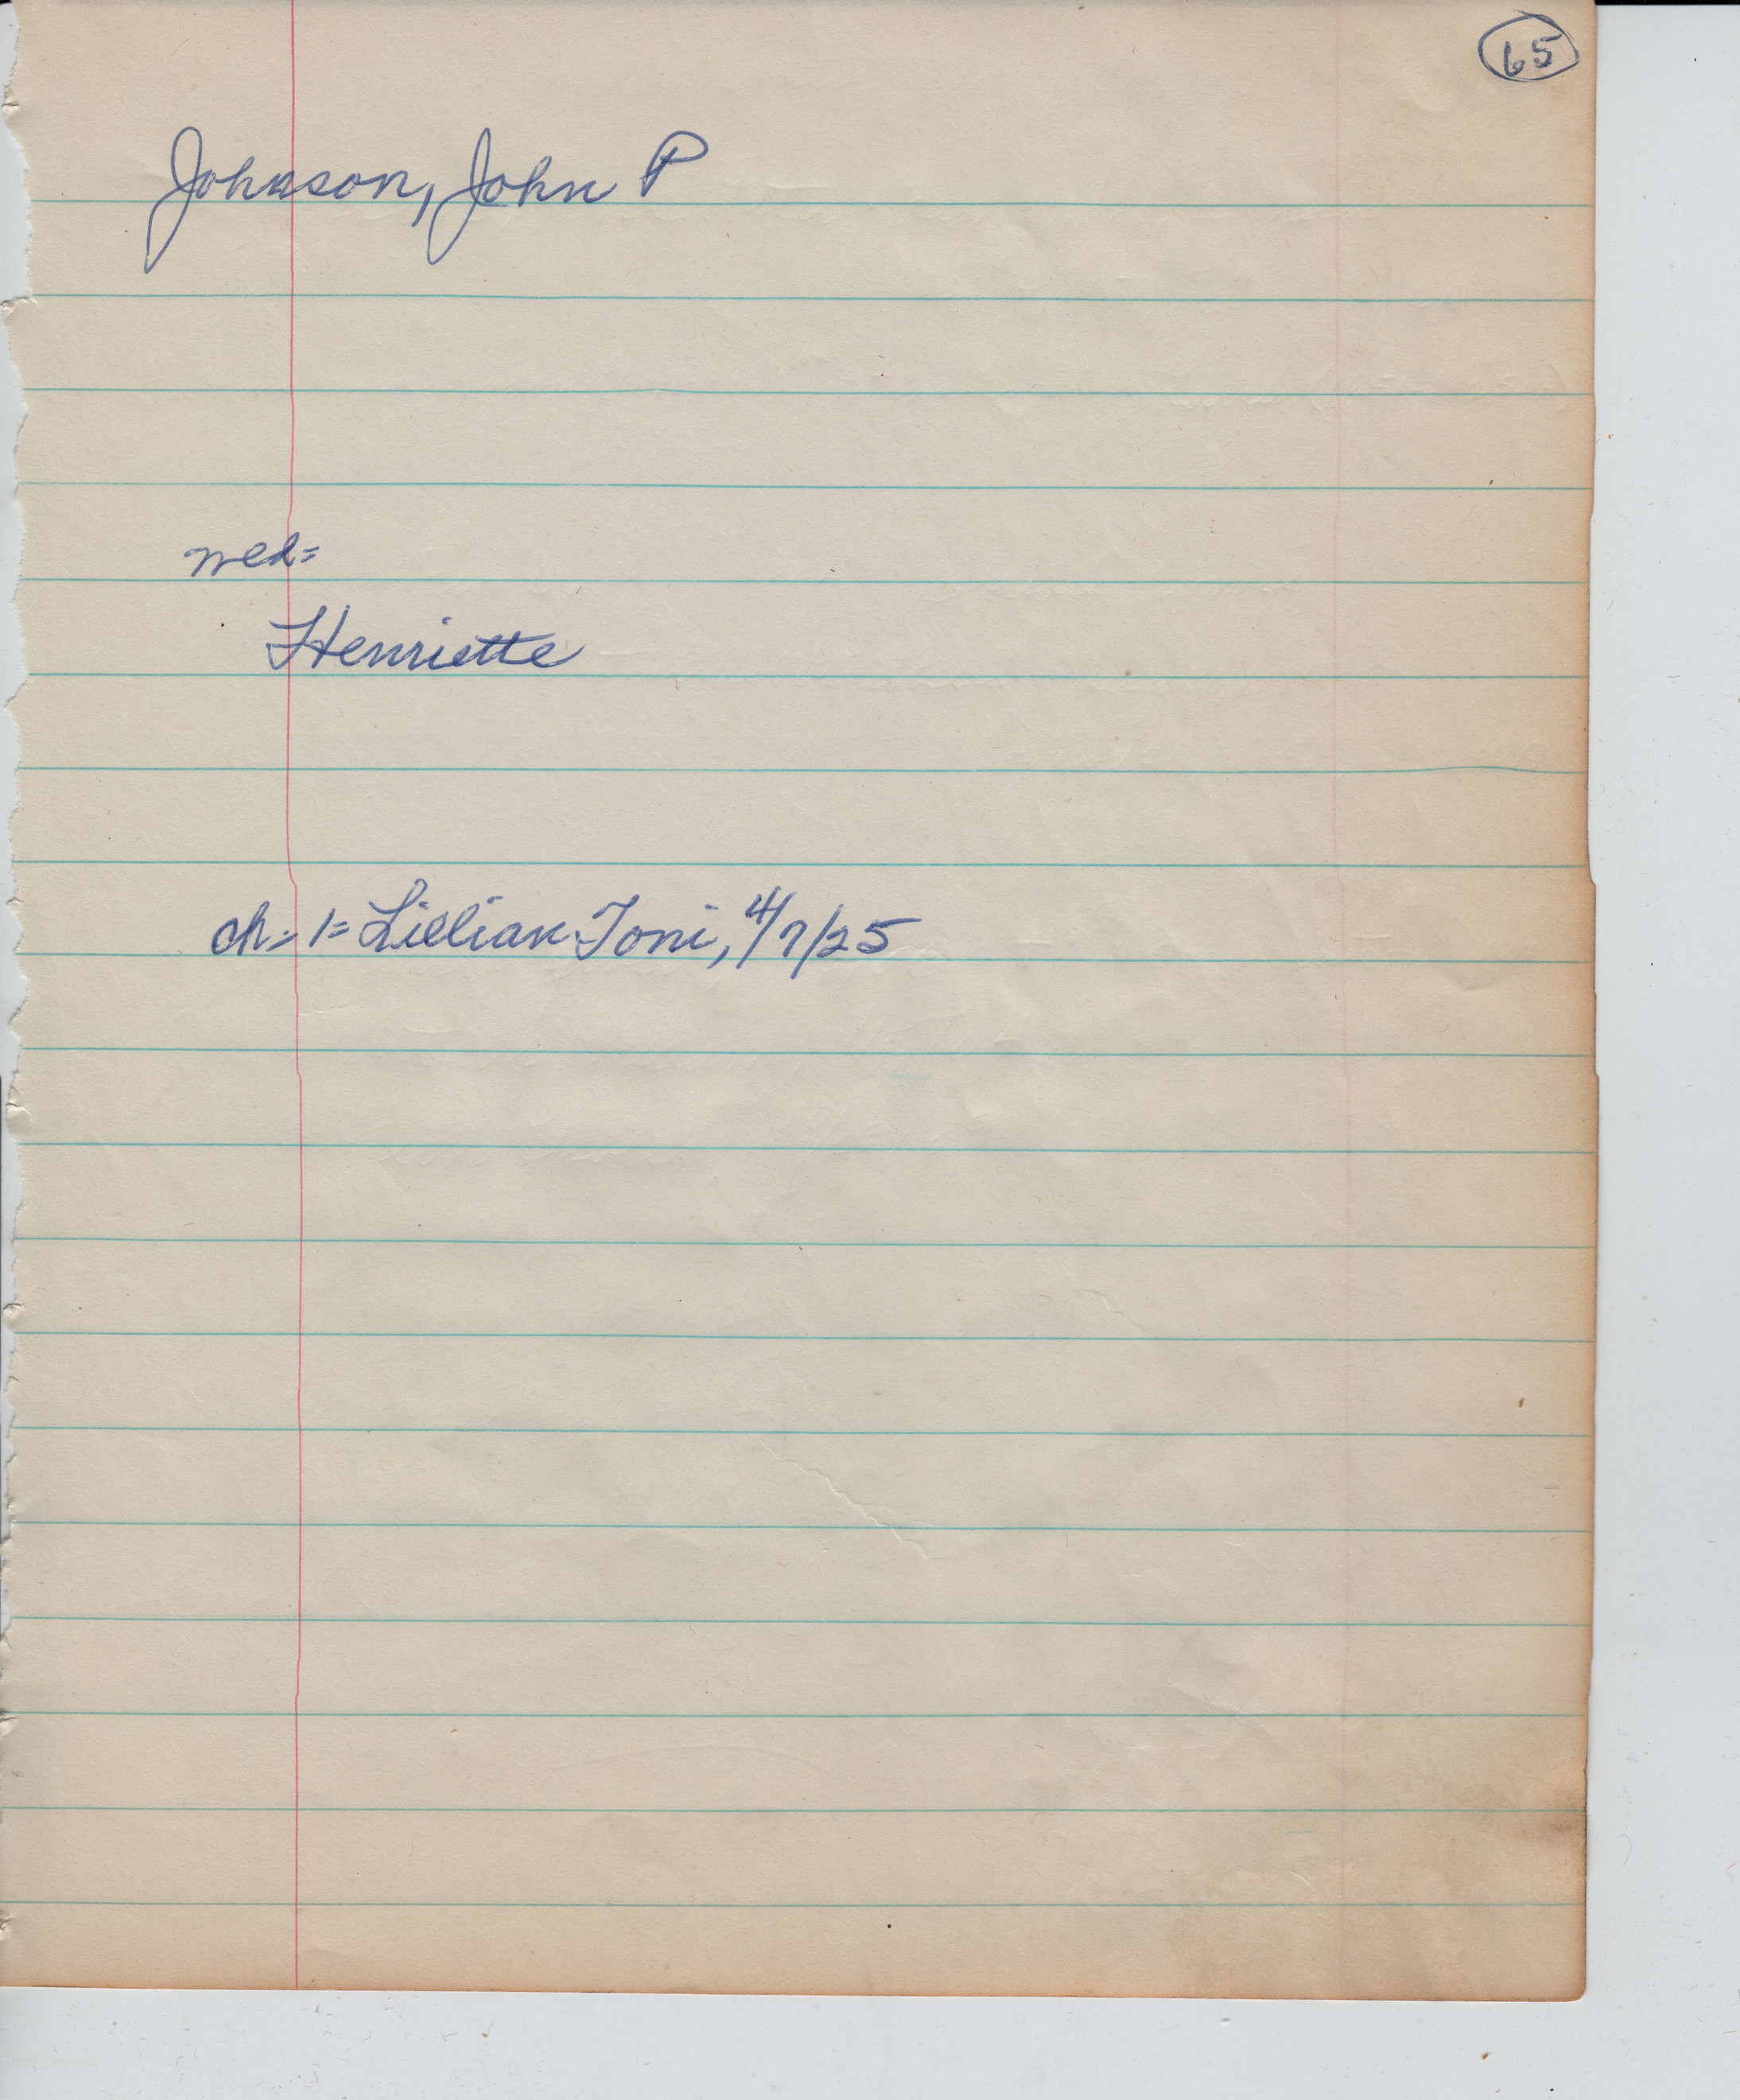 65
Johnson, John P
wed=
Henriette
ch= 1= Lillian Toni, 4/7/25